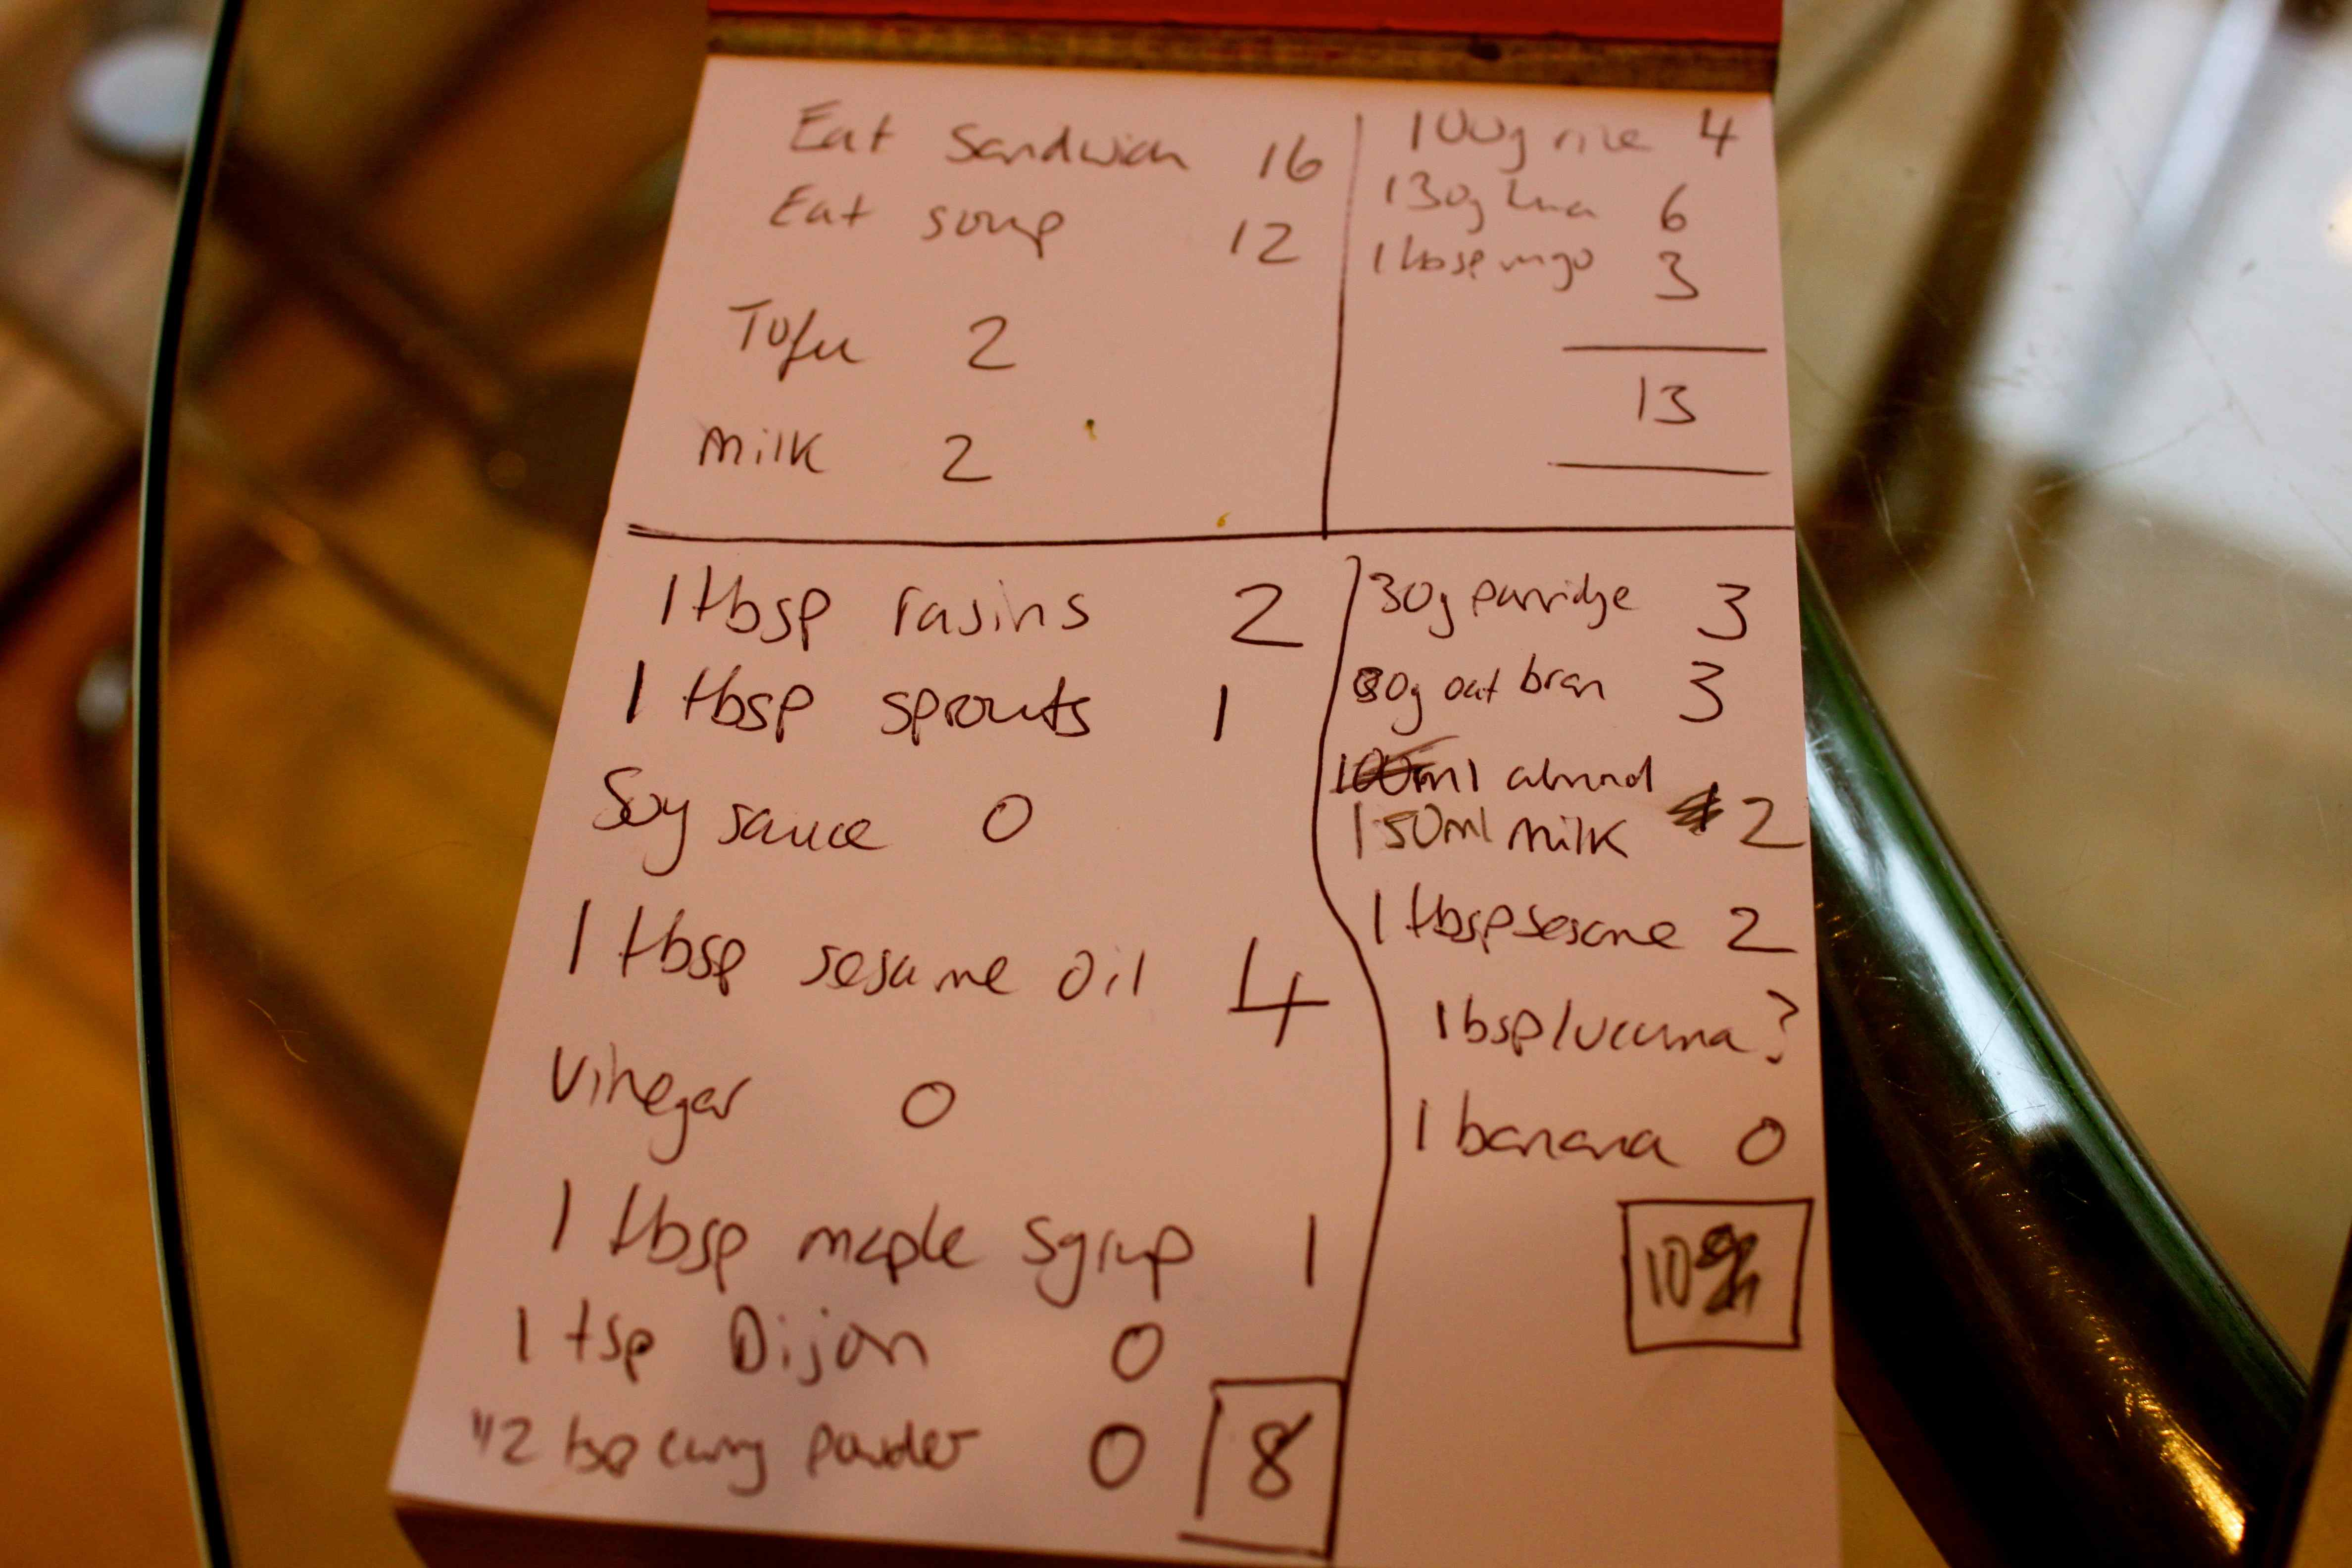 Eat Sandwich 16
Eat soup 12
Tofu 2
Milk 2
100g rice 4
130g tuna 6
1 tbsp mayo 3
13
1 tbsp rasins 2
1 tbsp sprouts 1
Soy sauce 0
1 tbsp sesame oil 4
Vinegar 0
1 tbsp maple syrup 1
1 tsp Dijon 0
1/2 tsp curry powder 0
8
30g porridge 3
30g oat bran 3
100ml almond
150ml milk 2
1 tbsp sesame 2
1 bsp lucuma ?
1 banana 0
10